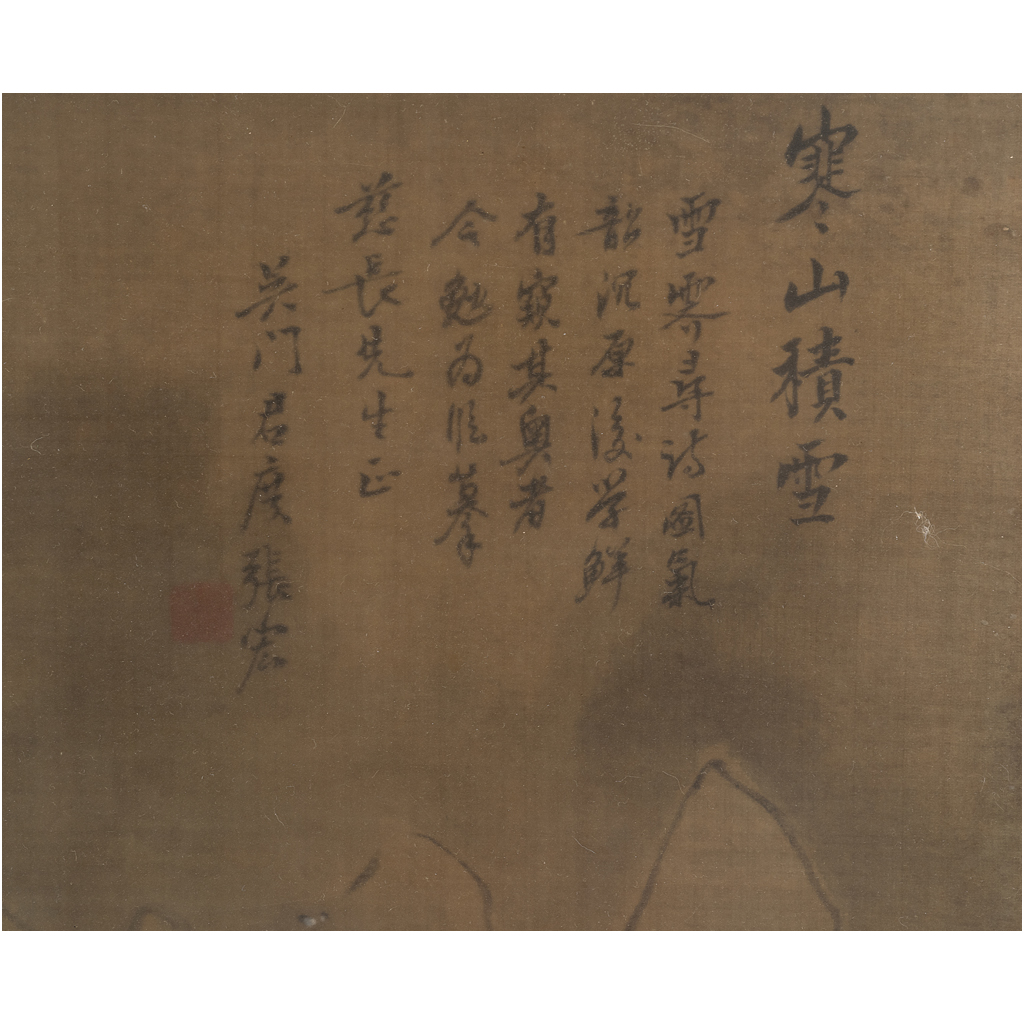 寒山積雪
雪霽尋詩圖氣
韶沉厚後学鮮
有窺其奥者
今勉为临摹
慈長先生正
吴门君度張宏